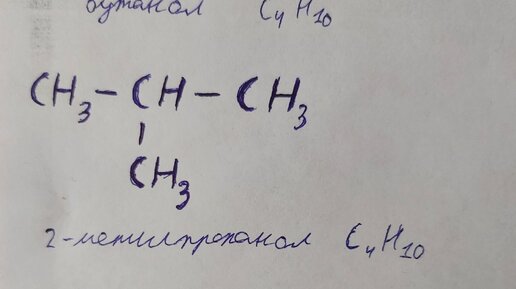 бутанол C₄H₁₀
CH₃ – CH – CH₃
|
CH₃
2-метилпропанол C₄H₁₀